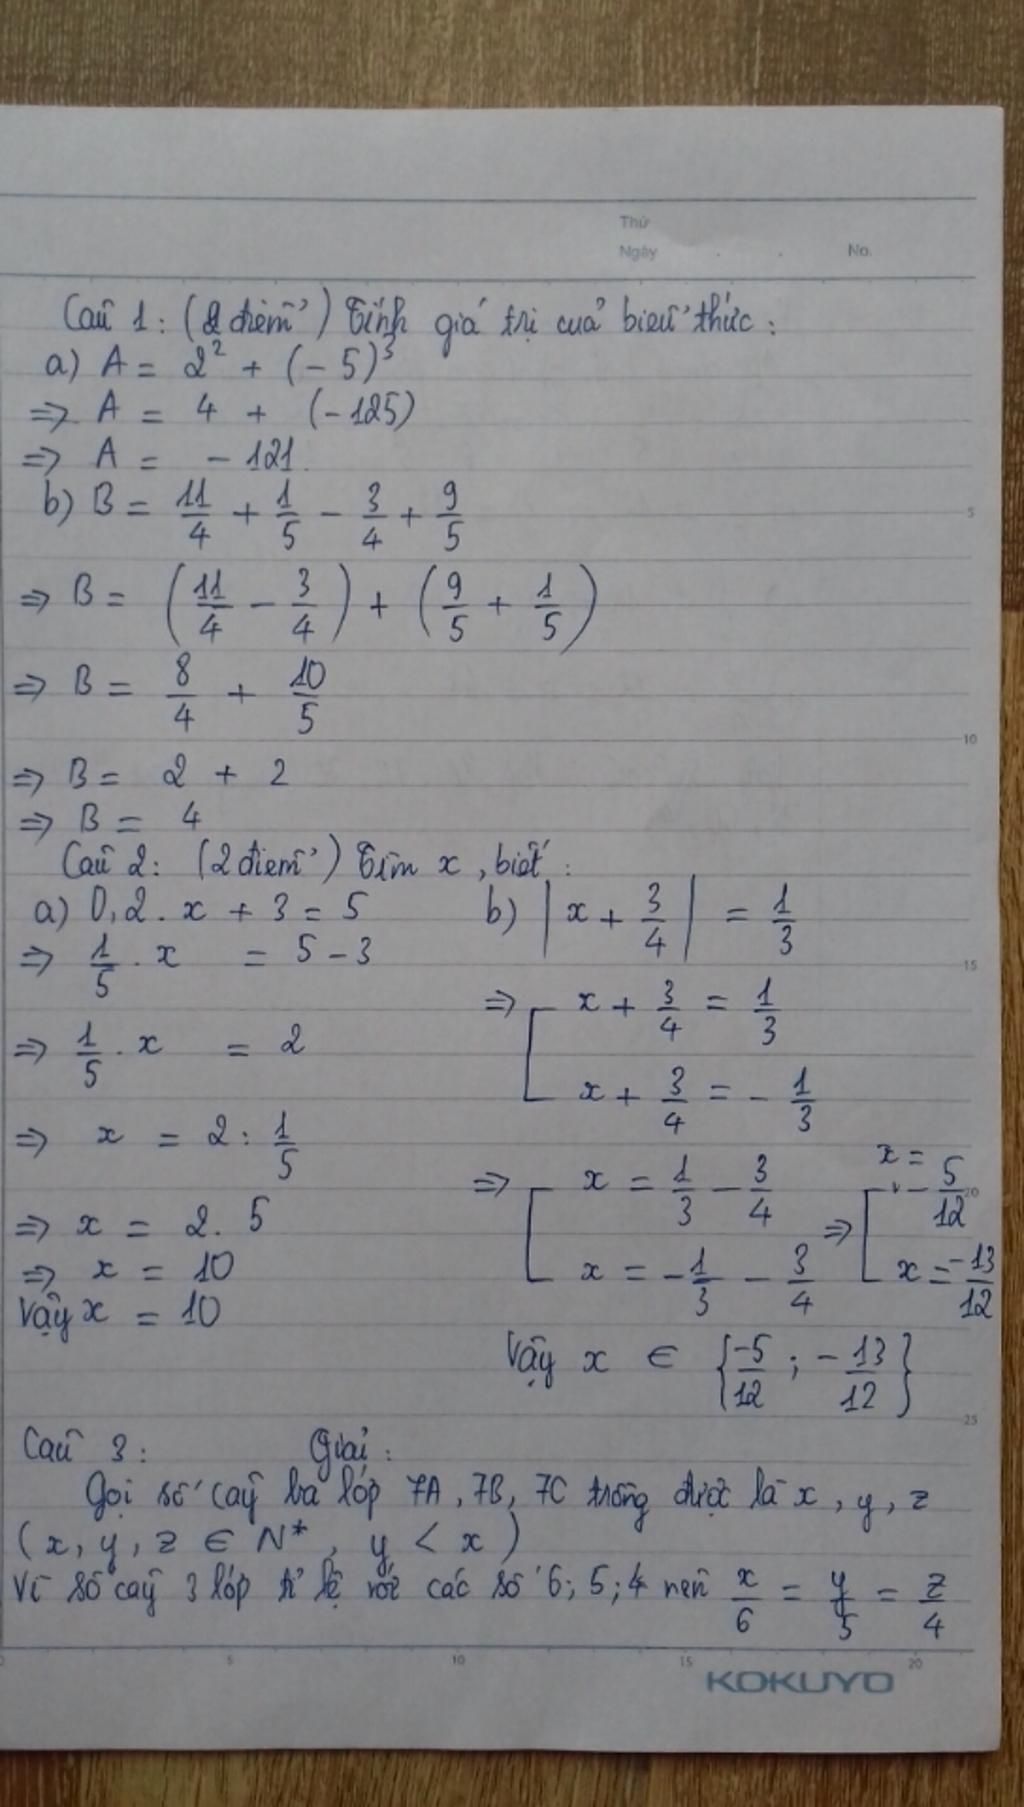 Thứ
Ngày . . No.
Câu 1: (2 điểm) Tính giá trị của biểu thức:
a) A = 2² + (-5)³
=> A = 4 + (-125)
=> A = -121.
b) B = 11/4 + 1/5 - 3/4 + 9/5
=> B = (11/4 - 3/4) + (9/5 + 1/5)
=> B = 8/4 + 10/5
=> B = 2 + 2
=> B = 4
Câu 2: (2 điểm) Tìm x, biết:
a) 0,2 . x + 3 = 5
=> 1/5 . x = 5 - 3
=> 1/5 . x = 2
=> x = 2 : 1/5
=> x = 2 . 5
=> x = 10
Vậy x = 10
b) |x + 3/4| = 1/3
=> [ x + 3/4 = 1/3
x + 3/4 = - 1/3
=> [ x = 1/3 - 3/4 => [ x = - 5/12
x = - 1/3 - 3/4 x = -13/12
Vậy x ∈ {-5/12 ; - 13/12}
Câu 3: Giải:
Gọi số cây ba lớp 7A, 7B, 7C trồng được là x, y, z
(x, y, z ∈ N*, y < x)
Vì số cây 3 lớp tỉ lệ với các số 6; 5; 4 nên x/6 = y/5 = z/4
5 10 15 20 25
0 5 10 15 20
KOKUYO